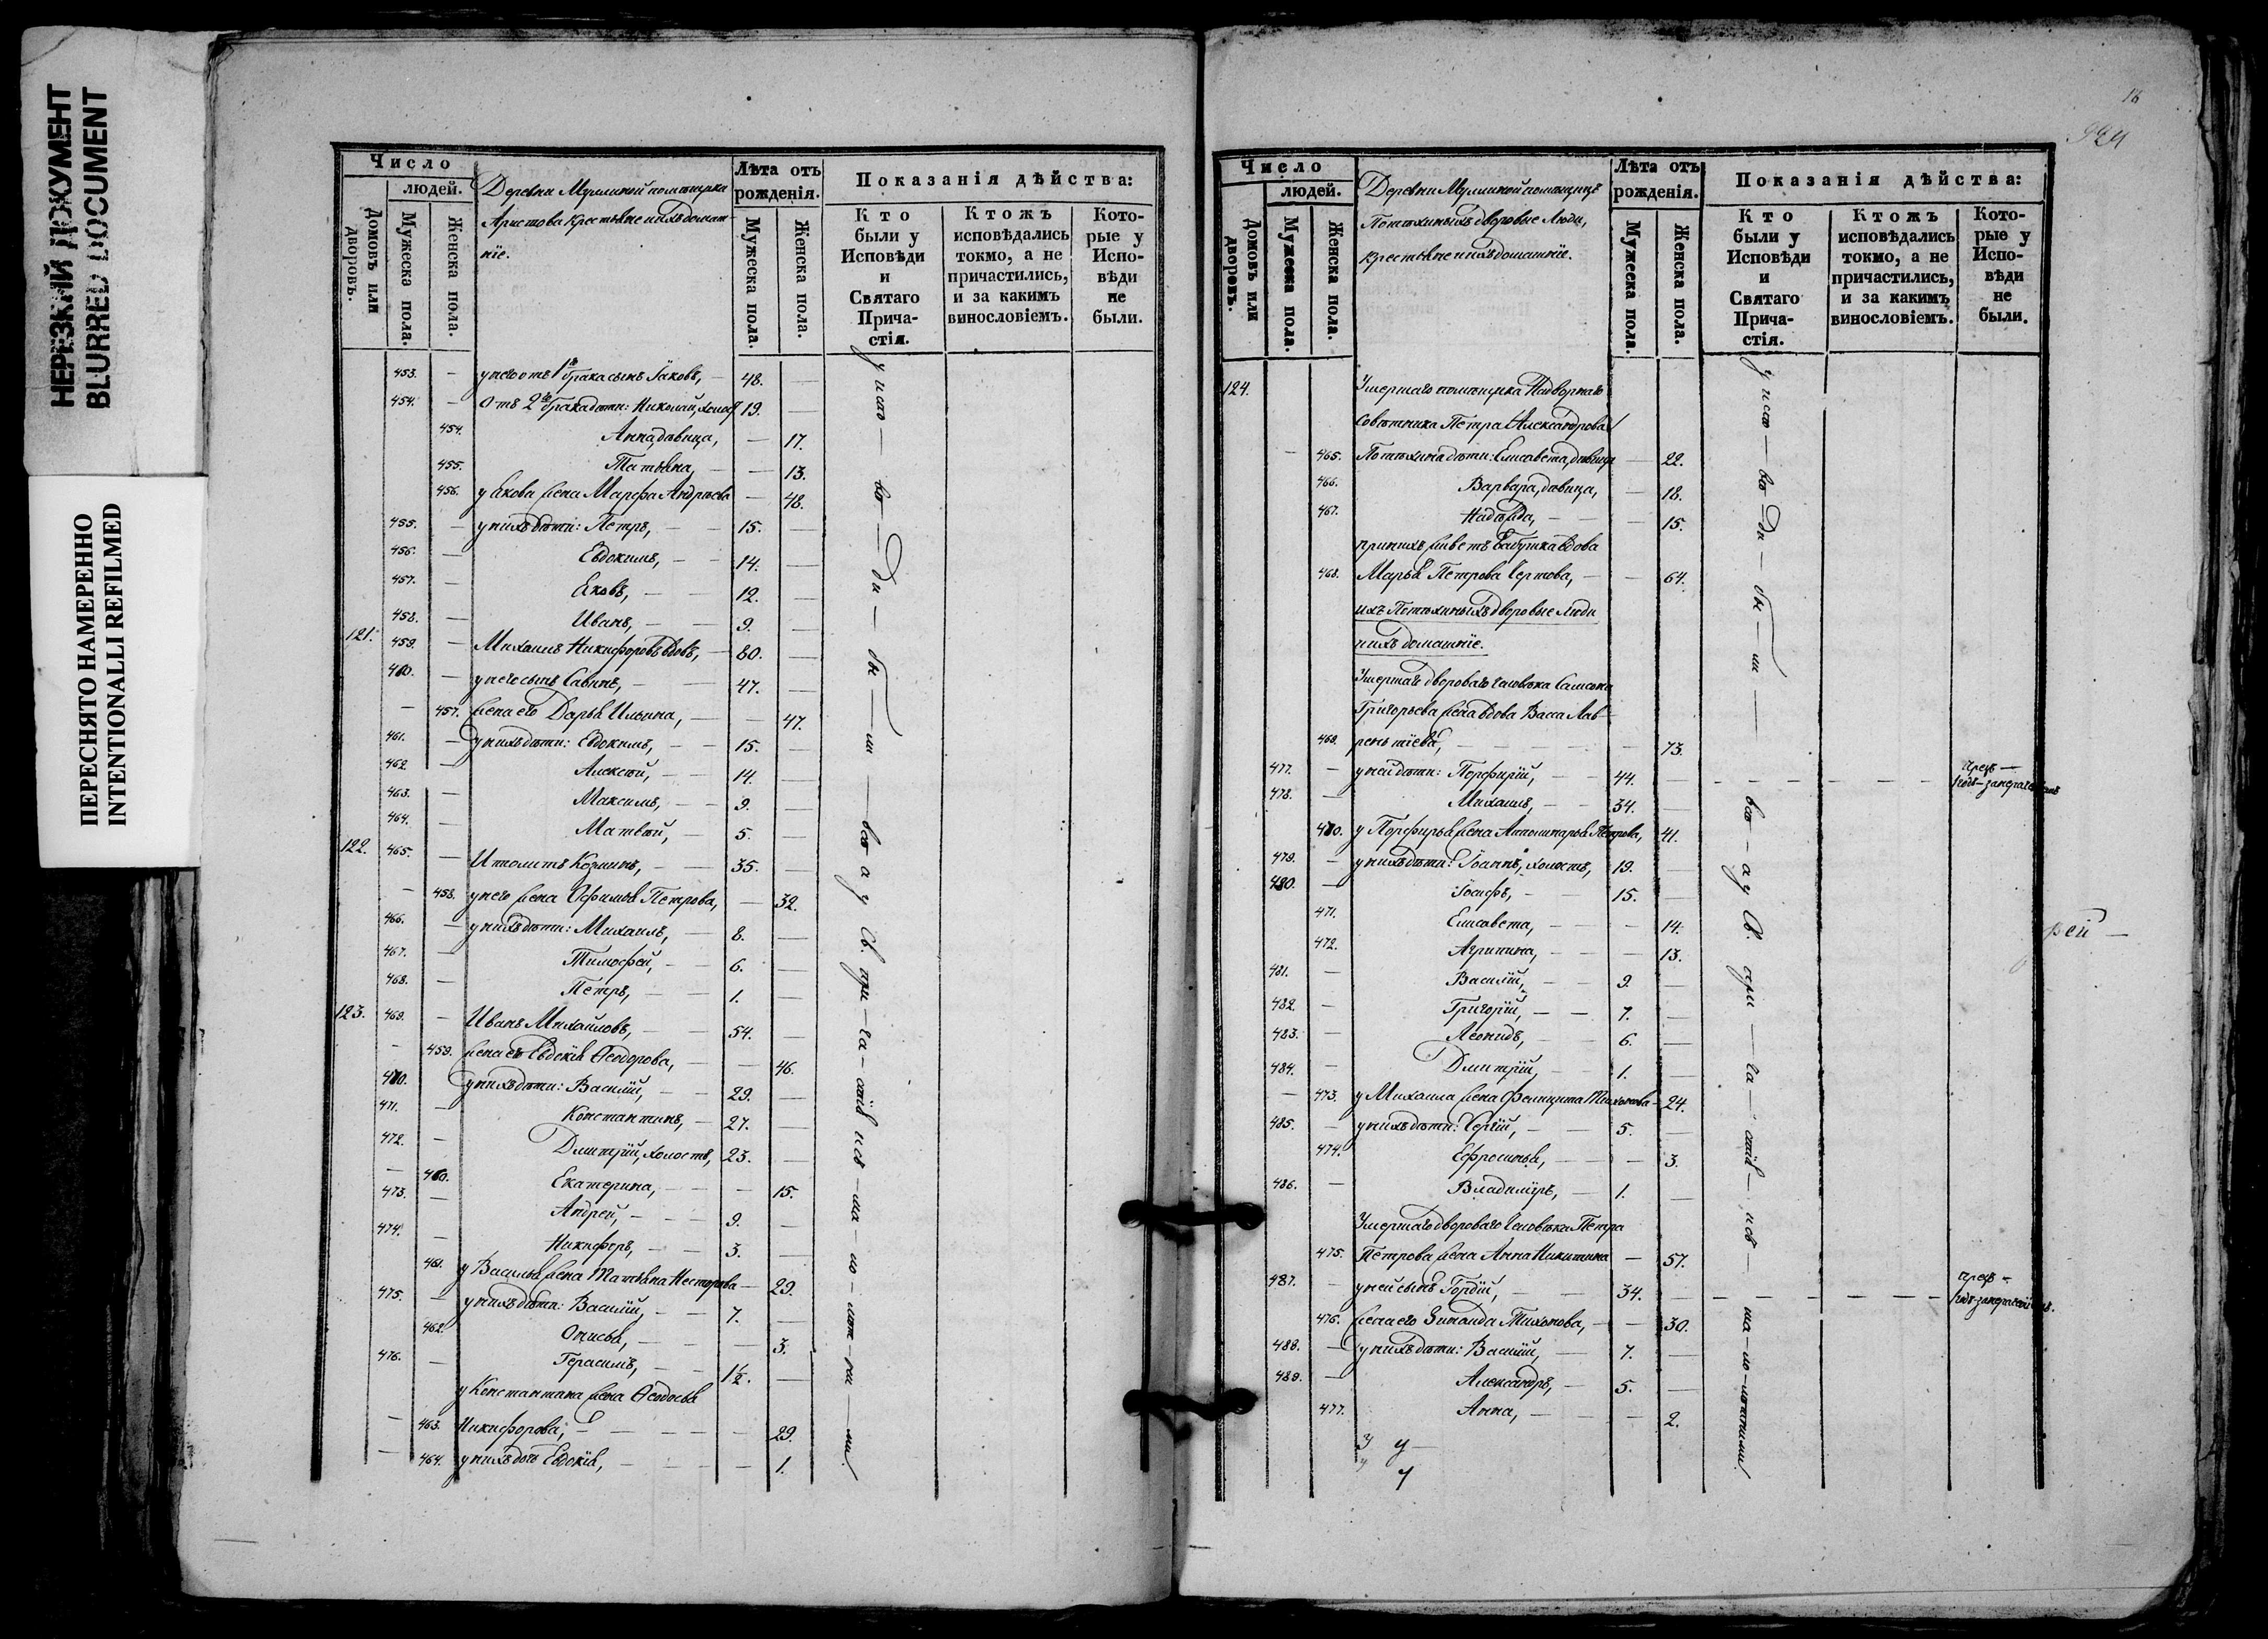 НЕРЕЗКИЙ ДОКУМЕНТ
BLURRED DOCUMENT
ПЕРЕСНЯТО НАМЕРЕННО
INTENTIONALLI REFILMED
Число
людей.
Домовъ или дворовъ.
Мужеска пола.
Женска пола.
Деревни помѣщика
Аристова крестьяне и ихъ домаш-
ніе.
Лѣта отъ рожденія.
Мужеска пола.
Женска пола.
Показанія дѣйства:
Кто были у Исповѣди и Святаго Прича-стія.
Ктожъ исповѣдались токмо, а не причастились, и за какимъ винословіемъ.
Кото-рые у Испо-вѣди не были.
453. — у него отъ 1го брака сынъ Іаковъ, — 48. —
454. — Отъ 2го брака дѣти: Николай, холос 19. —
454. Анна, дѣвица, — 17.
455. Татьяна, — — 13.
456. у Якова жена Марфа Андреева — 48.
455. — у нихъ дѣти: Петръ, — — 15. —
456. — Евдокимъ, — — 14. —
457. — Яковъ, — — 12. —
458. — Иванъ, — — 9. —
121. 459. — Михаилъ Никифоровъ вдовъ, — 80. —
460. — у него сынъ Савинъ, — — 47. —
— 457. жена его Дарья Ильина, — — 47.
461. — у нихъ дѣти: Евдокимъ, — — 15. —
462. — Алексѣй, — — 14. —
463. — Максимъ, — — 9. —
464. — Матвѣй, — — 5. —
122. 465. — Иполитъ Козминъ, — — 35. —
— 458. у него жена Афимья Петрова, — 32.
466. — у нихъ дѣти: Михаилъ, — — 8. —
467. — Тимофей, — — 6. —
468. — Петръ, — — 1. —
123. 469. — Иванъ Михайловъ, — — 54. —
— 459. жена его Евдокія Ѳеодорова, — — 46.
470. у нихъ дѣти: Василій, — — 29. —
471. — Константинъ, — 27. —
472. — Дмитрій, холостъ, 23. —
— 460. Екатерина, — — — 15.
473. — Андрей, — — — 9. —
474. — Никифоръ, — — 3. —
461. у Василья жена Татьяна Несторова — 29.
475. — у нихъ дѣти: Василій, — — 7. —
462. Онисья, — — — 3.
476. — Герасимъ, — — 1½. —
у Константина жена Ѳеодосья
— 463. Никифорова, — — — — 29.
— 464. у нихъ дочь Евдокія, — — — — 1.
у испо — вѣ — ди — бы — ли — всѣ — а у Св. при — ча — стія
16
924
Число
людей.
Домовъ или дворовъ.
Мужеска пола.
Женска пола.
Деревни помѣщицъ
Потѣхиныхъ дворовые люди,
крестьяне и ихъ домашніе.
Лѣта отъ рожденія.
Мужеска пола.
Женска пола.
Показанія дѣйства:
Кто были у Исповѣди и Святаго Прича-стія.
Ктожъ исповѣдались токмо, а не причастились, и за какимъ винословіемъ.
Кото-рые у Испо-вѣди не были.
124. Умершаго помѣщика Надворнаго
совѣтника Петра Александрова
— 465. Потѣхина дѣти: Елисавета, дѣвица — 22.
466. Варвара, дѣвица, — 18.
467. Надежда, — — — 15.
при нихъ живетъ бабушка вдова
468. Марья Петрова Чертова, — — 64.
ихъ Потѣхиныхъ дворовые люди
и ихъ домашніе.
Умершаго двороваго человѣка Самсона
Григорьева жена вдова Васса Лав-
469. рентіева, — — — — — 73.
477. — у ней дѣти: Порфирій, — 44. —
478. — Михаилъ, — — 34. —
470. у Порфирья жена Аполинарья Петрова, 41.
479. — у нихъ дѣти: Іоаннъ, холостъ, 19. —
480. — Іосифъ, — — 15. —
471. Елисавета, — — — 14.
472. Агрипина, — — — 13.
481. — Василій, — — 9. —
482. — Григорій, — — 7. —
483. — Леонидъ, — — 6. —
484. — Дмитрій, — — 1. —
— 473. у Михаила жена Фелицата Тихонова — 24.
485. — у нихъ дѣти: Сергій, — — 5. —
474. Ефросинья, — — — 3.
486. — Владиміръ, — 1. —
Умершаго двороваго человѣка Петра
475. Петрова жена Анна Никитина — 57.
487. — у ней сынъ Гордій, — — 34. —
476. жена его Зинаида Тихонова, — — 30.
488. — у нихъ дѣти: Василій, — 7. —
489. — Александръ, — 5. —
477. Анна, — — — 2.
у испо — вѣ — ди — бы — ли — всѣ — а у Св. при — ча — стія